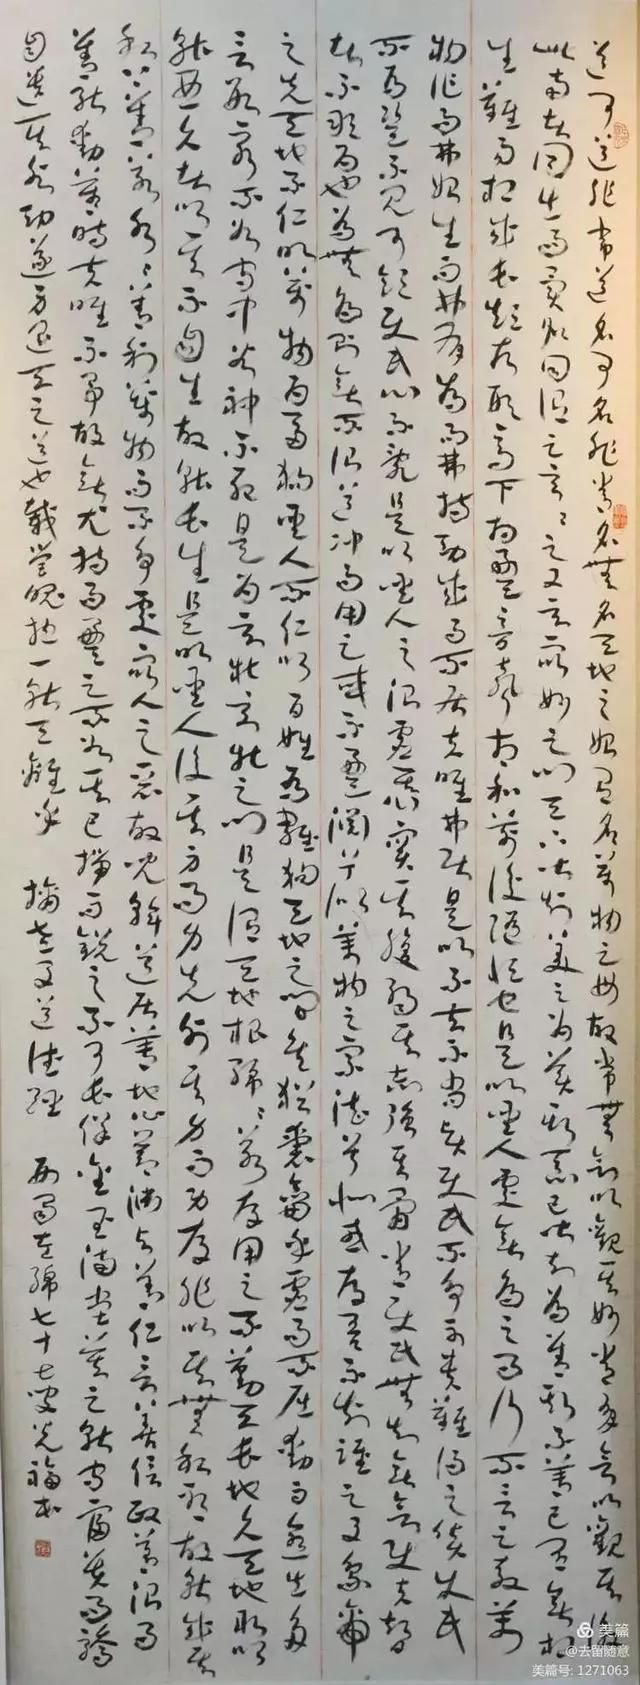 道可道非常道名可名非常名無名天地之始有名萬物之母故常無欲以觀其妙常有欲以觀其徼
此兩者同出而異名同謂之玄々之又玄衆妙之門天下皆知美之為美斯惡已皆知為善斯不善已有無相
生難易相成長短相形高下相盈音聲相和前後隨恒也是以聖人處無為之事行不言之教萬
物作而弗始生而弗有為而弗恃功成而不居夫唯弗居是以不去不尚賢使民不爭不貴難得之貨使民
不為盜不見可欲使民心不亂是以聖人之治虛其心實其腹弱其志強其骨常使民無知無欲使夫智
者不敢為也為無為則無不治道沖而用之或不盈淵兮似萬物之宗湛兮似或存吾不知誰之子象帝
之先天地不仁以萬物為芻狗聖人不仁以百姓為芻狗天地之間其猶橐籥乎虛而不屈動而愈出多
言數窮不如守中谷神不死是謂玄牝玄牝之門是謂天地根綿々若存用之不勤天長地久天地所以
能且久者以其不自生故能長生是以聖人後其身而身先外其身而身存非以其無私耶故能成其
私上善若水々善利萬物而不爭處衆人之惡故幾於道居善地心善淵與善仁言善信政善治事
善能動善時夫唯不爭故無尤持而盈之不如其已揣而銳之不可長保金玉滿堂莫之能守富貴而驕
自遺其咎功遂身退天之道也載營魄抱一能無離乎 摘老子道德經 西蜀左綿七十七叟光福書
美篇
@去留随意
美篇号: 1271063